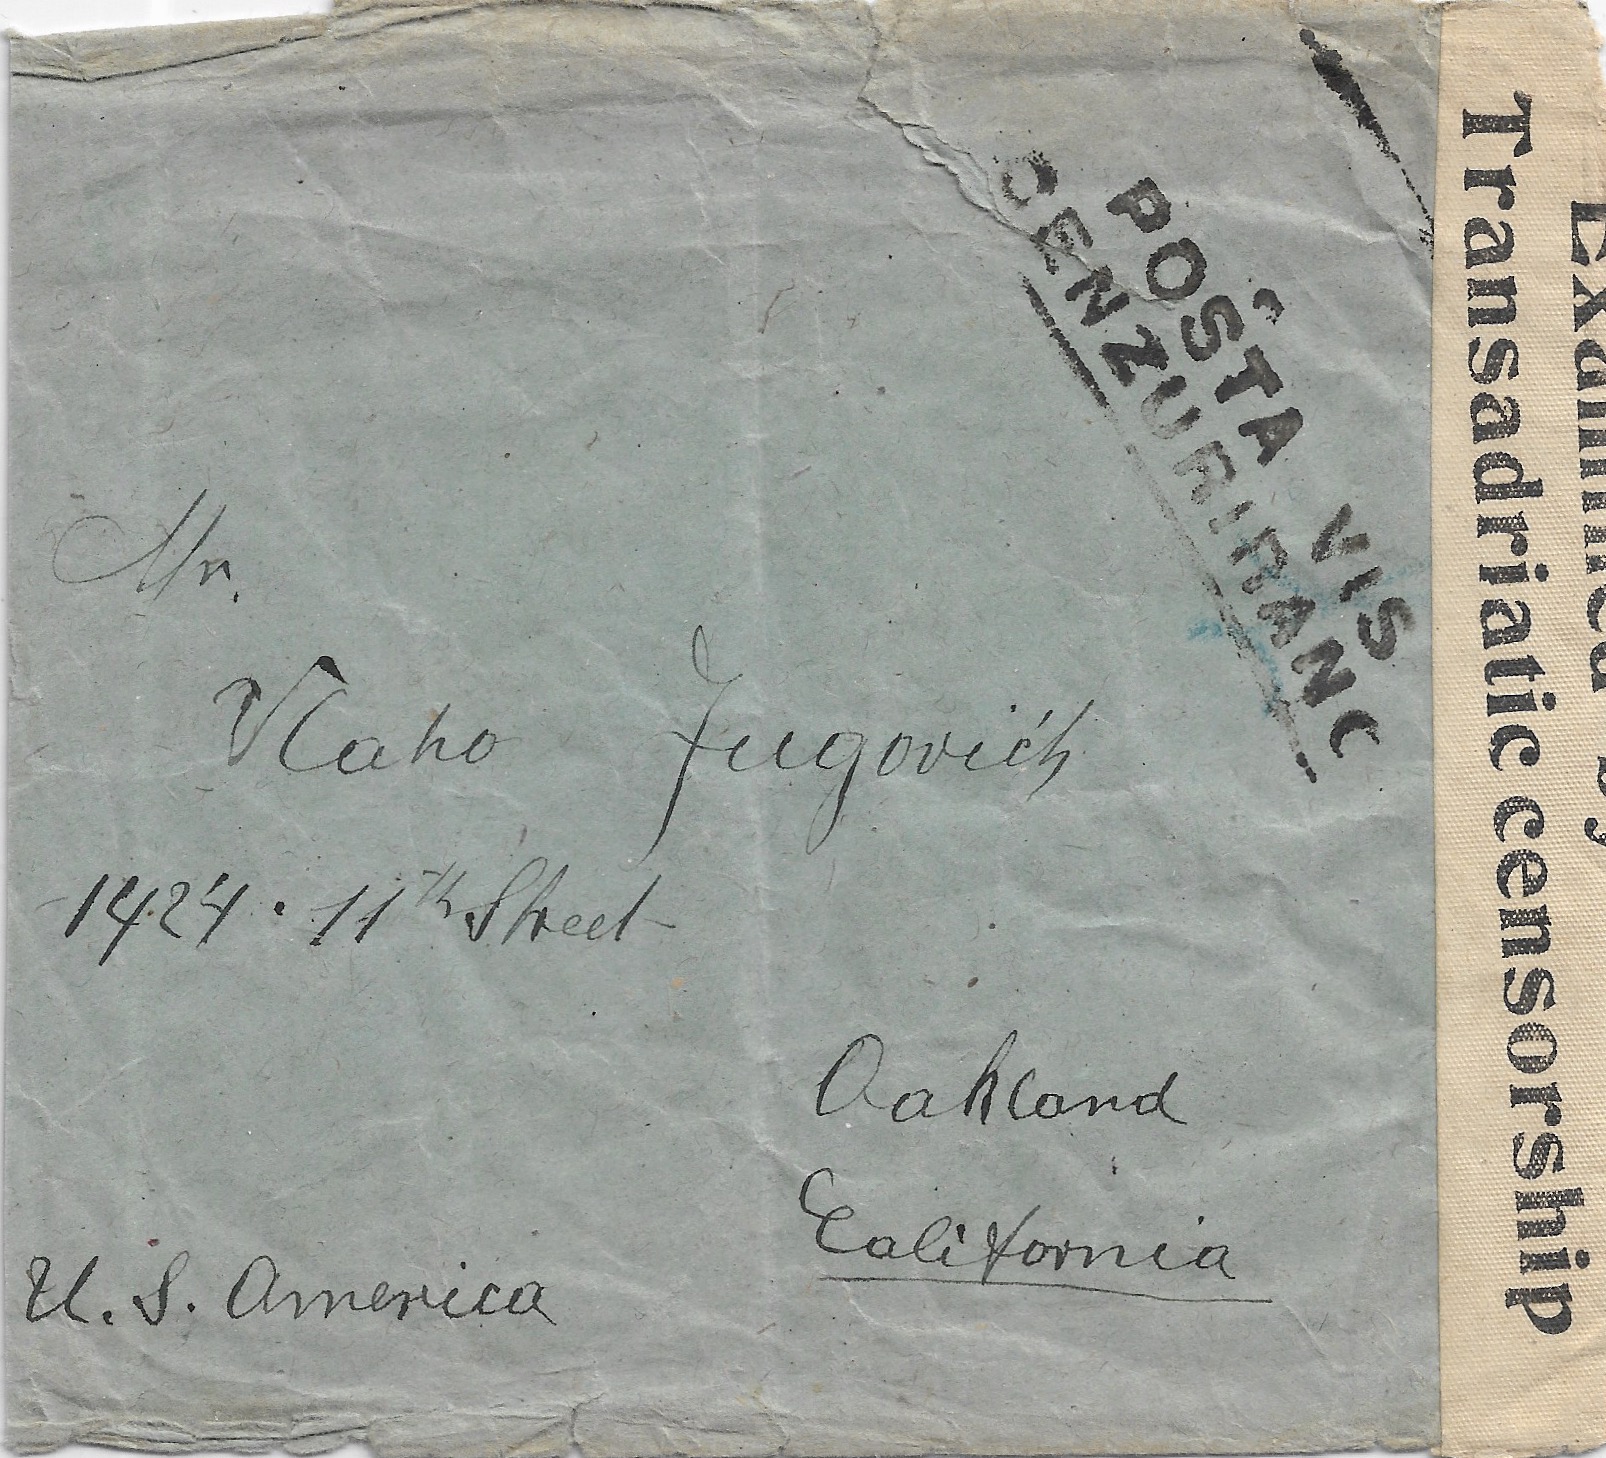 POŠTA VIS
CENZURIRANO
Mr.
Vlaho Jugovich
1424 · 11th Street
Oakland
California
U. S. America
Examined by
Transadriatic censorship